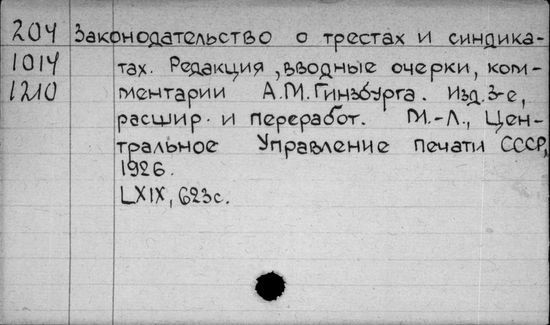 204 Законодательство о трестах и синдика-
1014 тах. Редакция, вводные очерки, ком-
1210 ментарии А.М.Гинзбурга. Изд.3-е,
расшир. и переработ. М.-Л., Цен-
тральное Управление печати СССР,
1926.
LXIX, 623с.